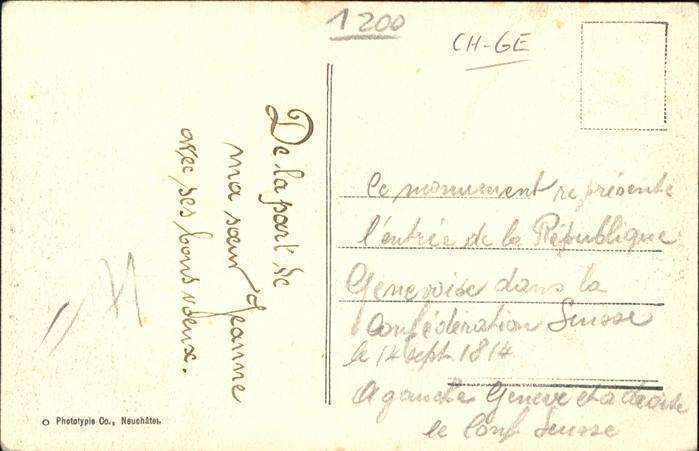 1200
CH-GE
De la part de
ma sœur Jeanne
avec ses bons vœux.
Ce monument représente
l'entrée de la République
Genevoise dans la
Confédération Suisse
le 12 sept 1814
A gauche Genève et a droite
la Conf Suisse
Phototypie Co., Neuchâtel.